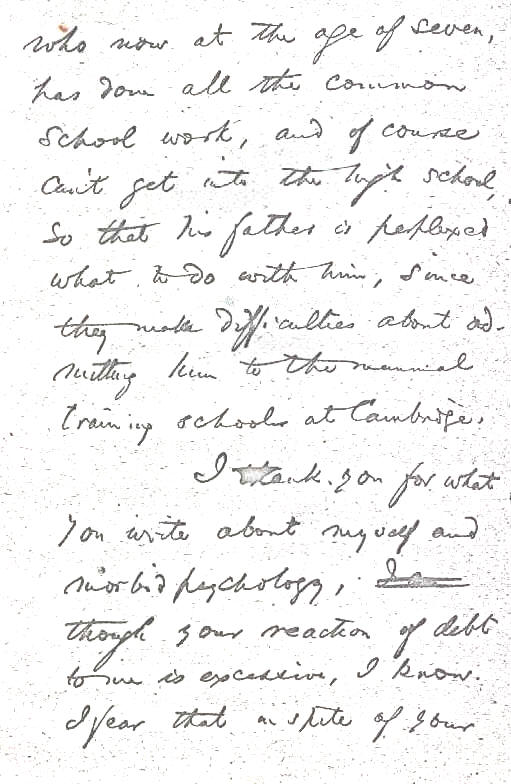 who now at the age of seven,
has done all the common
School work, and of course
can't get into the high school,
So that his father is perplexed
what to do with him, since
they make difficulties about ad-
mitting him to the manual
training schools at Cambridge.
I thank you for what
you write about myself and
morbid psychology,
though your reaction of debt
to me is excessive, I know.
I fear that in spite of your